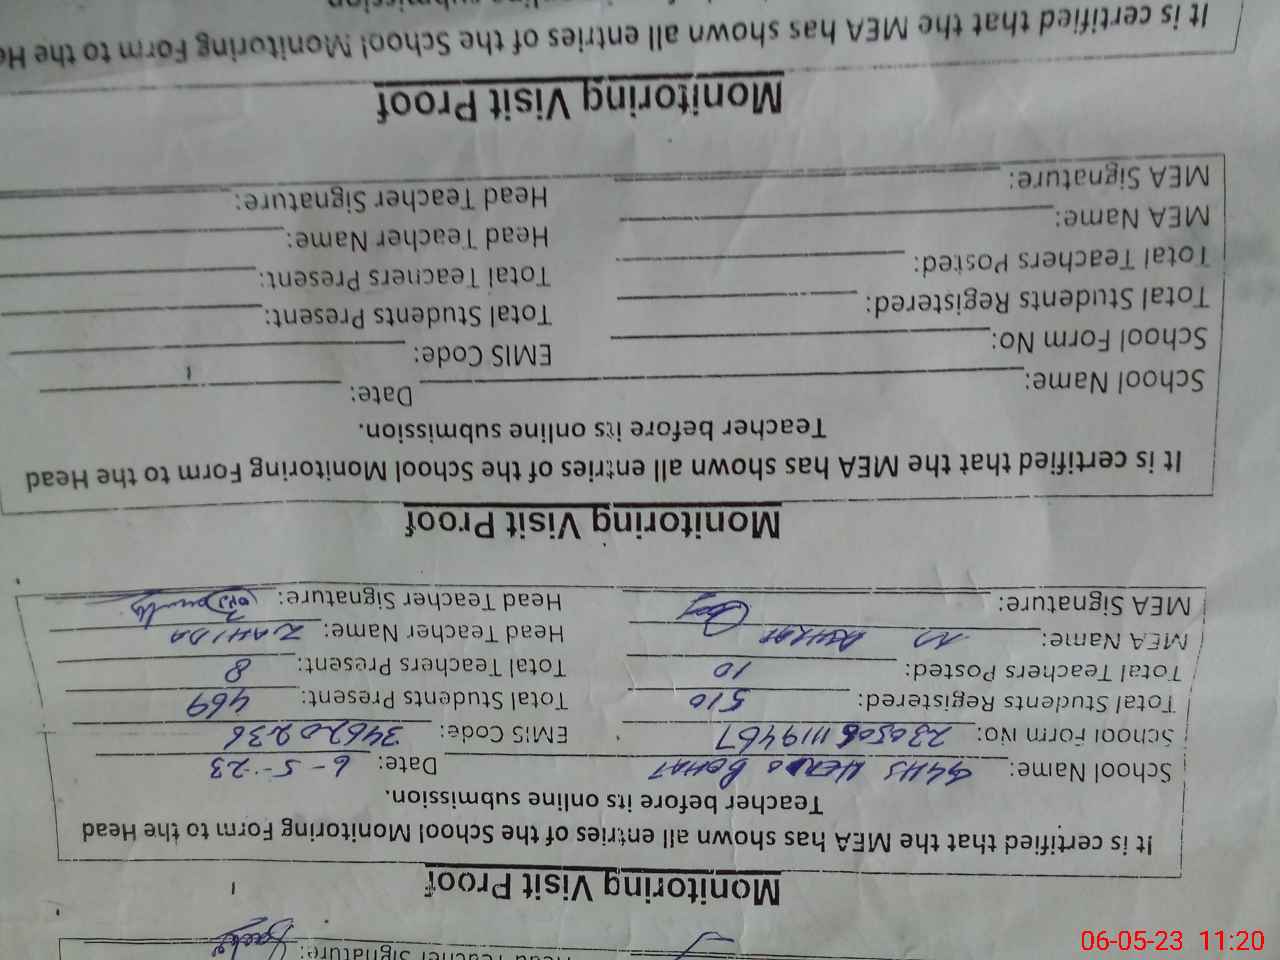 Head Teacher Signature:
Monitoring Visit Proof
It is certified that the MEA has shown all entries of the School Monitoring Form to the Head
Teacher before its online submission.
School Name: GGHS Date: 6-5-23
School Form No: 230506 1119467 EMIS Code: 34620236
Total Students Registered: 510 Total Students Present: 469
Total Teachers Posted: 10 Total Teachers Present: 8
MEA Name: M Head Teacher Name: ZAHIDA
MEA Signature: Head Teacher Signature:
Monitoring Visit Proof
It is certified that the MEA has shown all entries of the School Monitoring Form to the Head
Teacher before its online submission.
School Name: Date:
School Form No: EMIS Code:
Total Students Registered: Total Students Present:
Total Teachers Posted: Total Teachers Present:
MEA Name: Head Teacher Name:
MEA Signature: Head Teacher Signature:
Monitoring Visit Proof
It is certified that the MEA has shown all entries of the School Monitoring Form to the He
06-05-23 11:20